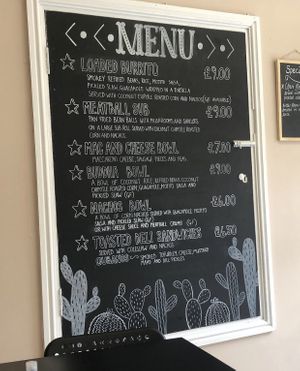 MENU
LOADED BURRITO £9.00
SMOKEY REFRIED BEANS, RICE, MOJITO SALSA,
PICKLED SLAW, GUACAMOLE WRAPPED IN A TORTILLA
SERVED WITH COCONUT CHIPOTLE ROASTED CORN AND NACHOS
MEATBALL SUB £9.00
PAN FRIED BEAN BALLS WITH MUSHROOMS AND
ON A LARGE SUB ROLL SERVED WITH COCONUT CHIPOTLE ROASTED
CORN AND
MAC AND CHEESE BOWL £7.00
MACCARONI CHEESE, SAUSAGE PIECES AND PEAS.
BUDDHA BOWL £9.00
A BOWL OF COCONUT RICE, REFRIED BEANS, COCONUT
CHIPOTLE ROASTED CORN, GUACAMOLE, MOJITO SALSA AND
PICKLED SLAW (GF)
NACHOS BOWL £6.00
A BOWL OF CORN NACHOS SERVED WITH GUACAMOLE, MOJITO
SALSA AND PICKLED SLAW (GF)
OR WITH CHEESE SAUCE AND MEATBALL CRUMB (GF)
TOASTED DELI SANDWICHES £6.50
SERVED WITH COLESLAW AND NACHOS
CUBANOS - SMOKED TOFURKEY, CHEESE, MUSTARD
MAYO AND DILL PICKLES
Special